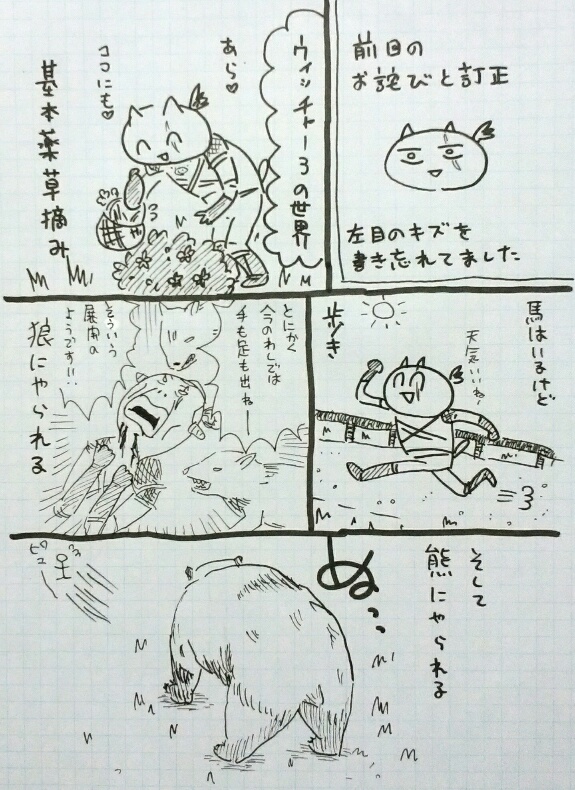 前回の
お詫びと訂正
左目のキズを
書き忘れてました
ウィッチャー3の世界
あら♡
ココにも♡
基本薬草摘み
馬はいるけど
天気いいねー
歩き
とにかく
今のわしでは
手も足も出ねー
そういう
展開の
ようです!!
狼にやられる
そして
熊にやられる
ぬっ